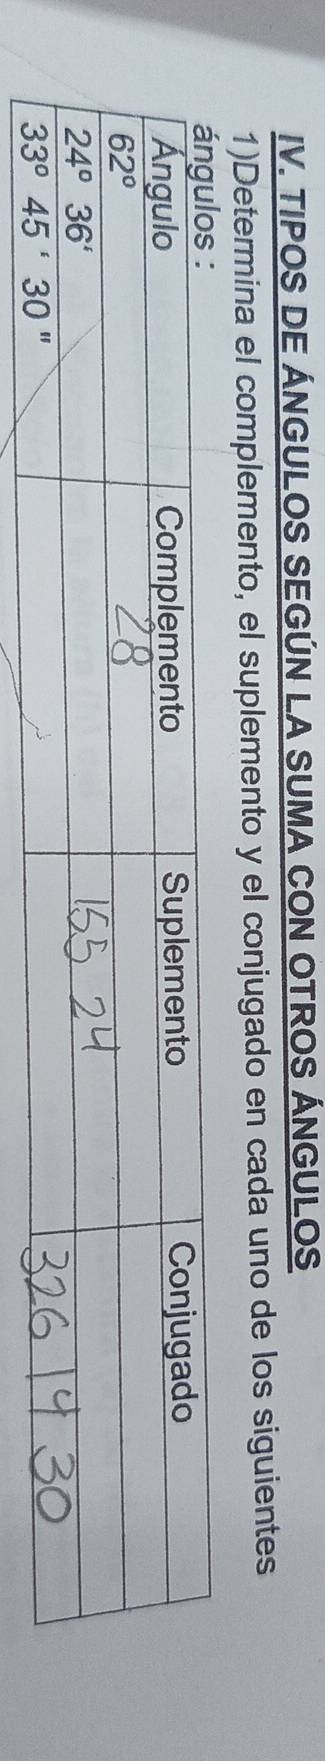 IV. TIPOS DE ÁNGULOS SEGÚN LA SUMA CON OTROS ÁNGULOS
1)Determina el complemento, el suplemento y el conjugado en cada uno de los siguientes
ángulos :
Ángulo Complemento Suplemento Conjugado
62° 28
24° 36' 155 24
33° 45 ' 30 " 326 14 30